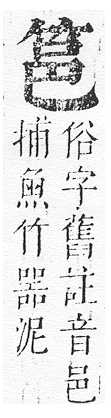 𥬔
俗字舊註音邑
捕魚竹器泥